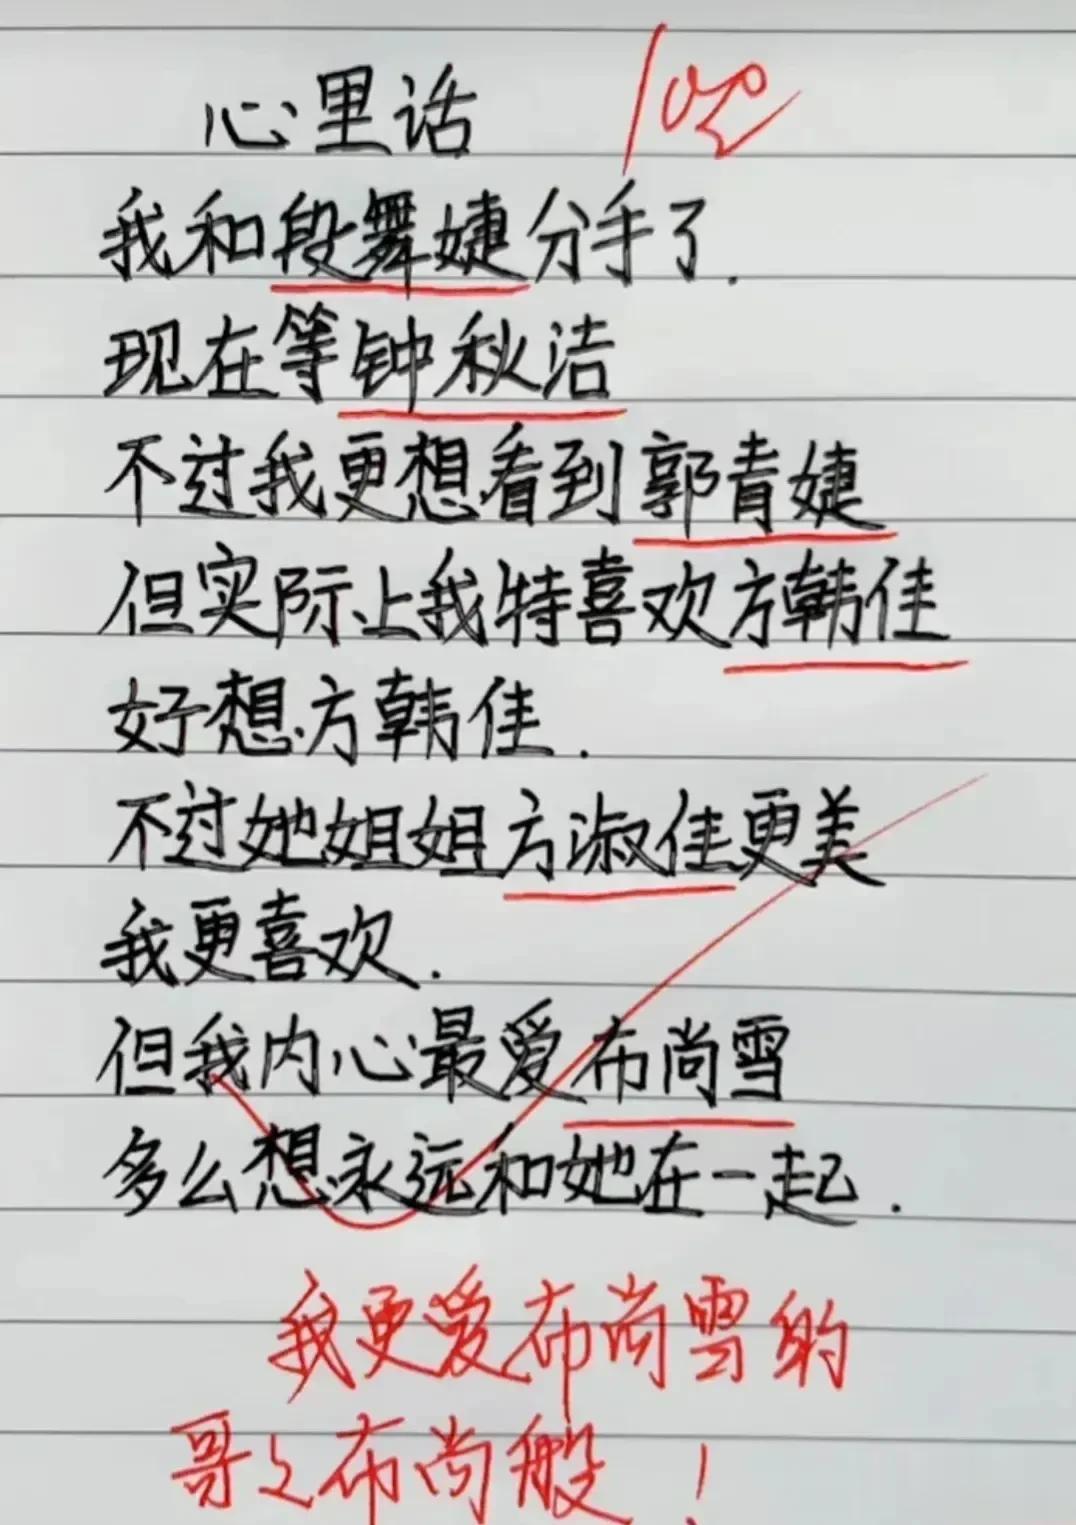 心里话
100
我和段舞婕分手了.
现在等钟秋洁
不过我更想看到郭青婕
但实际上我特喜欢方韩佳
好想方韩佳.
不过她姐姐方淑佳更美
我更喜欢.
但我内心最爱布尚雪
多么想永远和她在一起.
我更爱布尚雪的
哥々布尚般!